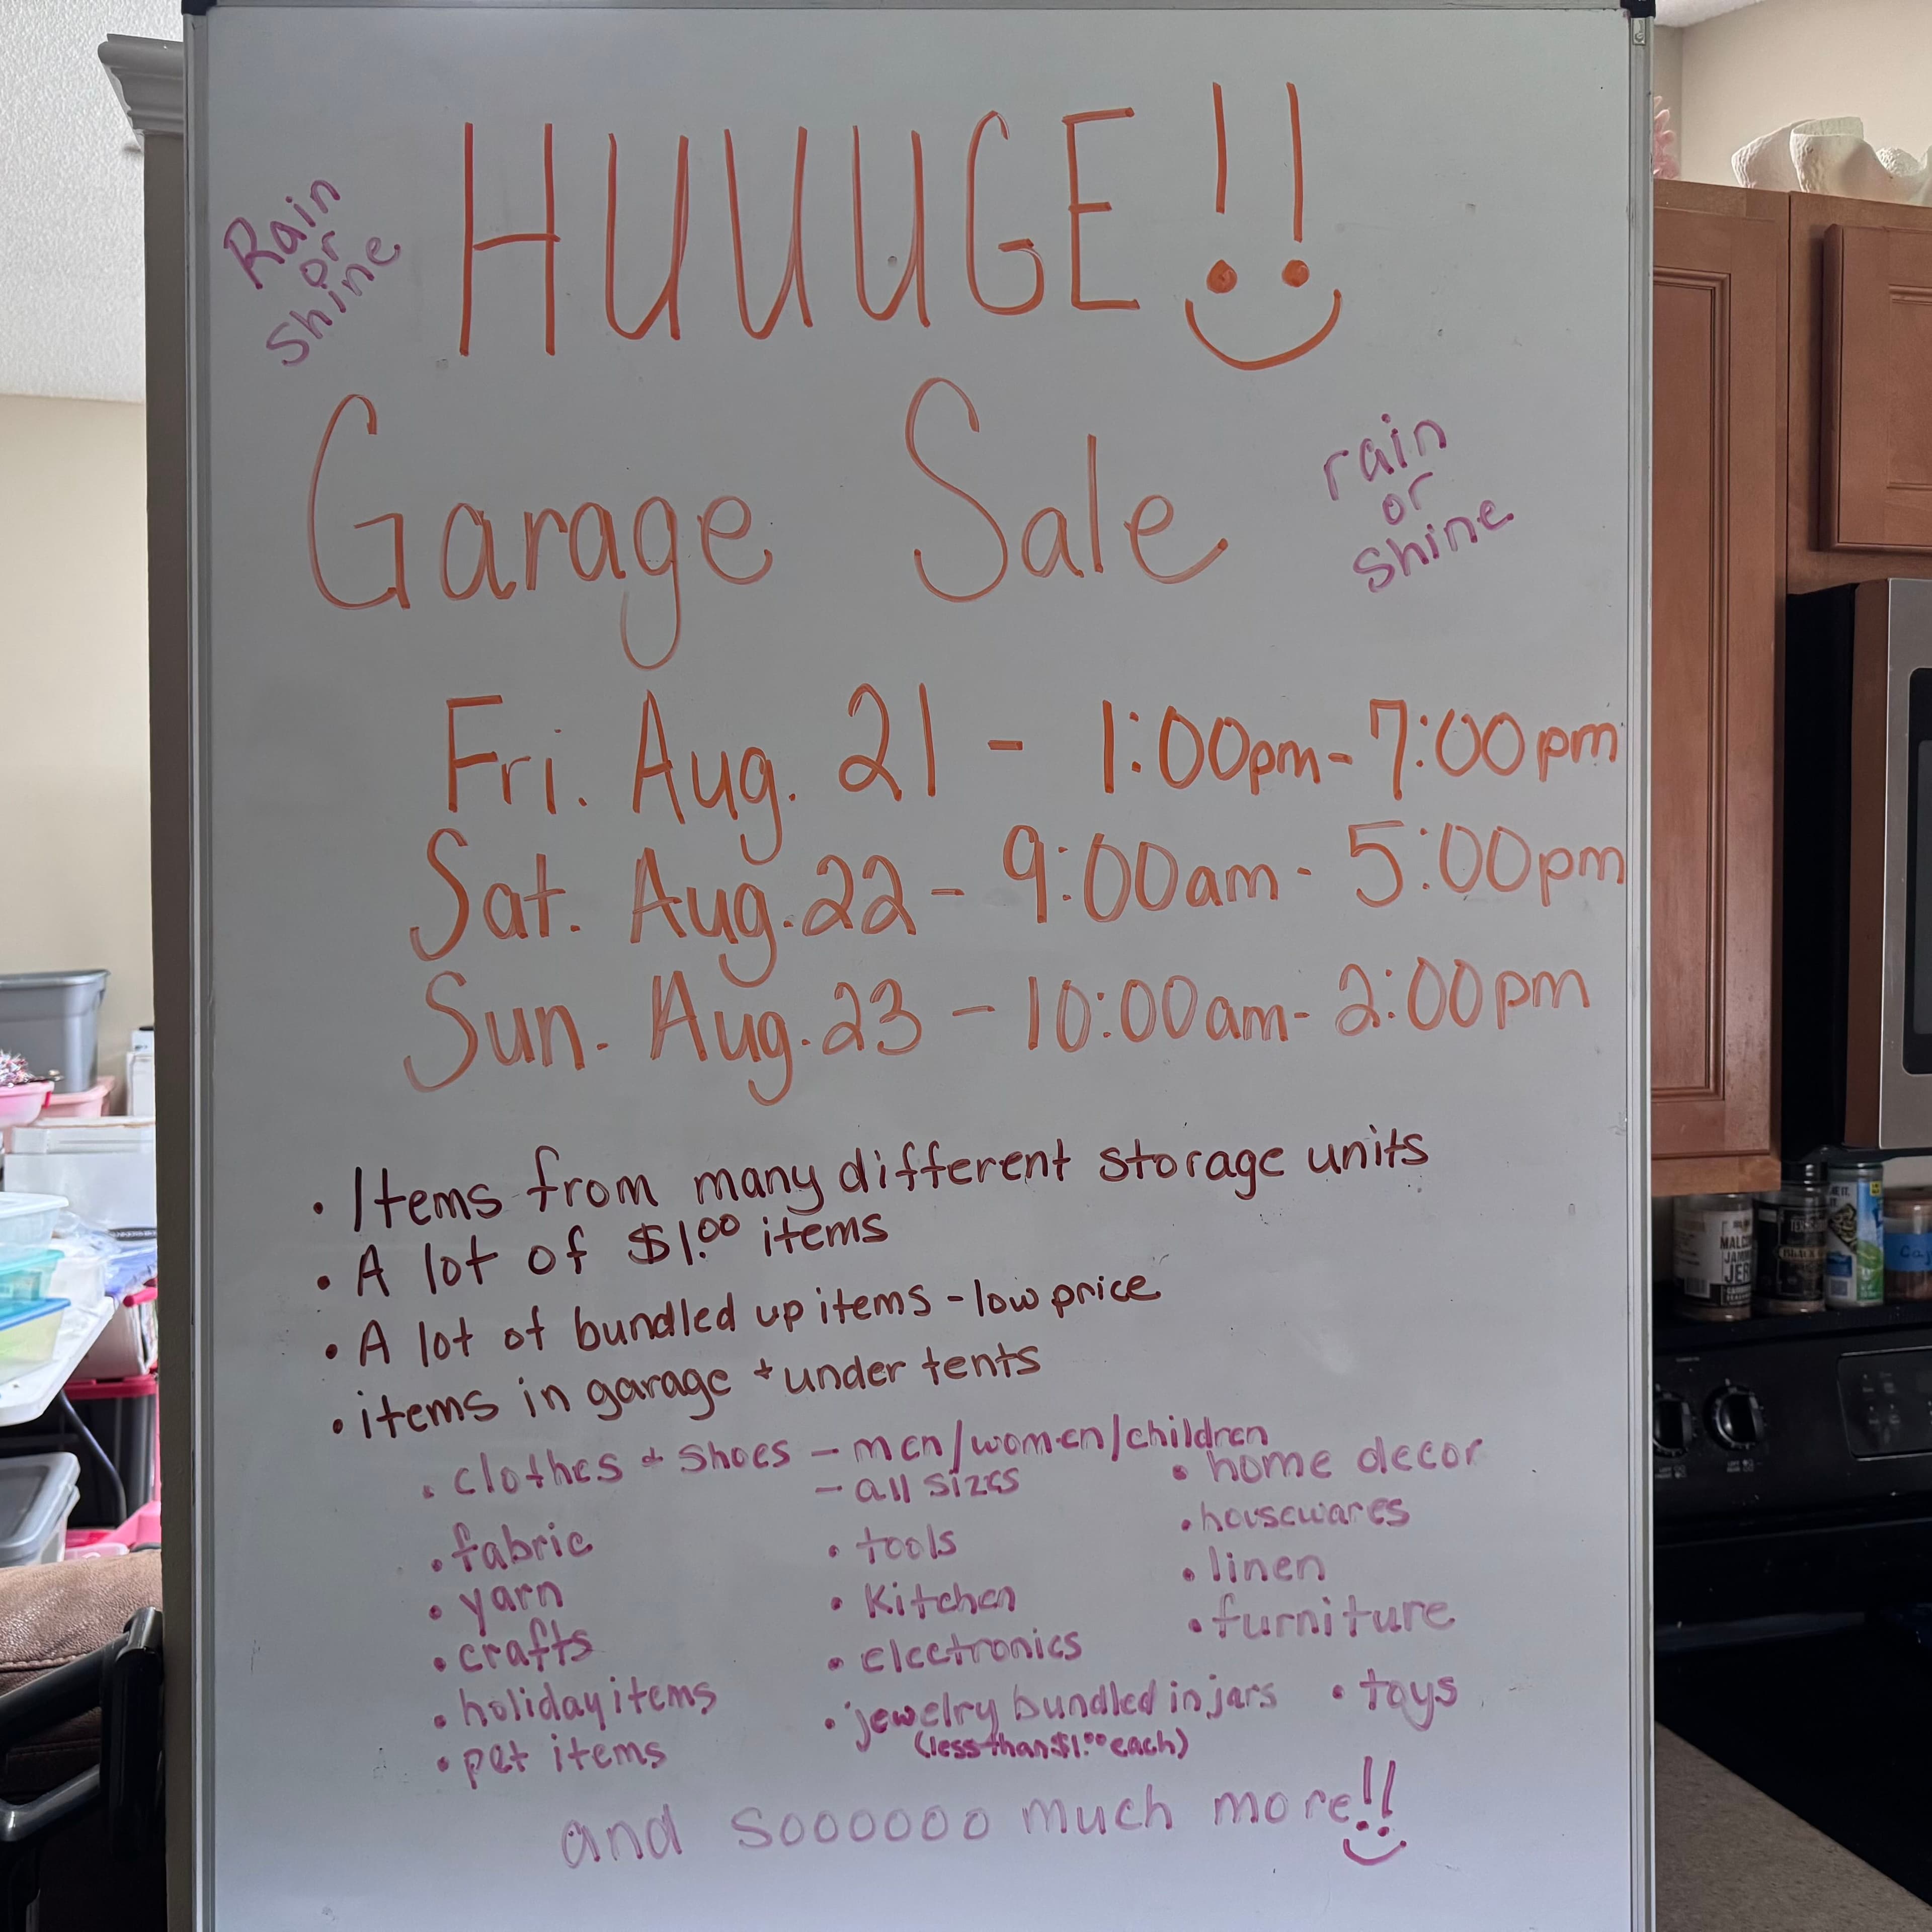 HUUUGE!!
Rain
or
Shine
Garage Sale
rain
or
shine
Fri. Aug. 21 - 1:00pm - 7:00pm
Sat. Aug. 22 - 9:00am - 5:00pm
Sun. Aug. 23 - 10:00am - 2:00pm
• Items from many different storage units
• A lot of $1.00 items
• A lot of bundled up items - low price
• items in garage + under tents
• clothes + shoes - men/women/children
- all sizes
• fabric
• yarn
• crafts
• holiday items
• pet items
• tools
• Kitchen
• electronics
• jewelry bundled in jars
(less than $1.00 each)
• home decor
• housewares
• linen
• furniture
• toys
and soooooo much more!!